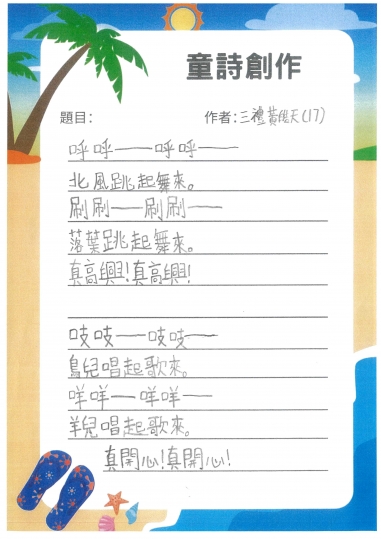 童詩創作
題目: 作者:三禮黃 天(17)
呼呼——呼呼——
北風跳起舞來。
刷刷——刷刷——
落葉跳起舞來。
真高興!真高興!
吱吱——吱吱——
鳥兒唱起歌來。
咩咩——咩咩——
羊兒唱起歌來。
真開心!真開心!